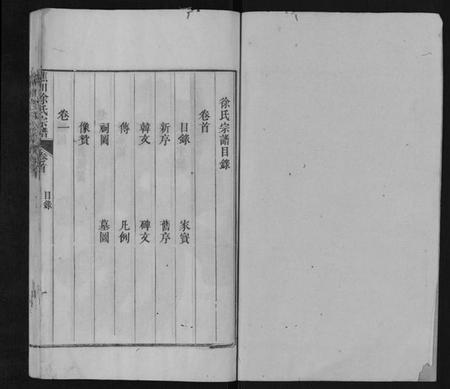 徐氏宗譜目錄
卷首
目錄 家寶
新序 舊序
韓文 碑文
傳 凡例
祠圖 墓圖
像贊
卷一
川徐氏宗譜 卷首 目錄